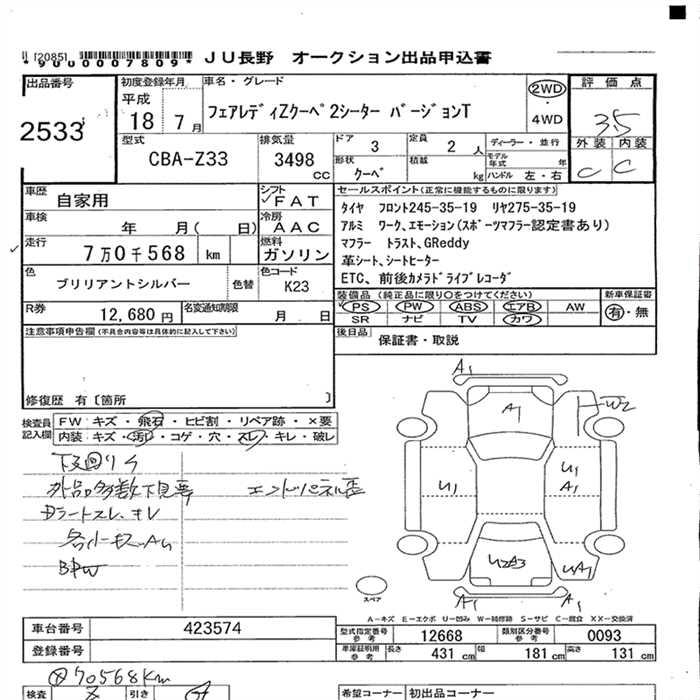 [2085]
*9000007809* JU長野 オークション出品申込書
出品番号 初度登録年月 車名・グレード 評価点
2533 平成 18 7月 フェアレディZクーペ2シーター バージョンT 2WD・4WD 3.5
型式 排気量 ドア 3 定員 2人 ディーラー・並行 外装 内装
CBA-Z33 3498cc 形状 クーペ 積載 kg モデル年式 年 ハンドル 左・右 C C
車歴 自家用 シフト FAT セールスポイント(正常に機能するものに限ります)
車検 年 月( 日) 冷房 AAC
タイヤ フロント245-35-19 リヤ275-35-19
アルミ ワーク、エモーション(スポーツマフラー認定書あり)
走行 7万0千568 km 燃料 ガソリン
マフラー トラスト、GReddy
革シート、シートヒーター
色 ブリリアントシルバー 色替 色コード K23
ETC、前後カメラドライブレコーダ
R券 12,680円 名変通知期限 月 日
装備品(純正品に限り○をつけてください) 新車保証書
PS PW ABS エアB AW 有・無
SR ナビ TV カワ
注意事項申告欄(不具合内容等は具体的に記入して下さい)
後日品 保証書・取説
修復歴 有〔箇所 〕
検査員記入欄 FW キズ・飛石・ヒビ割・リペア跡・×要
内装 キズ・汚れ・コゲ・穴・スレ・キレ・破レ
下廻りS
外品多数下見要 エンドパネル歪
Dシートスレ、キレ
各小キズ・AU
BPW
A1
A1 W2
U1 U1 A1
U2A3 UA1
A1 A1
スペア
A-キズ E-エクボ U-凹み W-補修跡 S-サビ C-腐食 XX-交換済
車台番号 423574 型式指定番号 参考 12668 類別区分番号 参考 0093
登録番号 車庫証明用 参考 長さ 431cm 幅 181cm 高さ 131cm
70568Km
検査 引き 希望コーナー 初出品コーナー